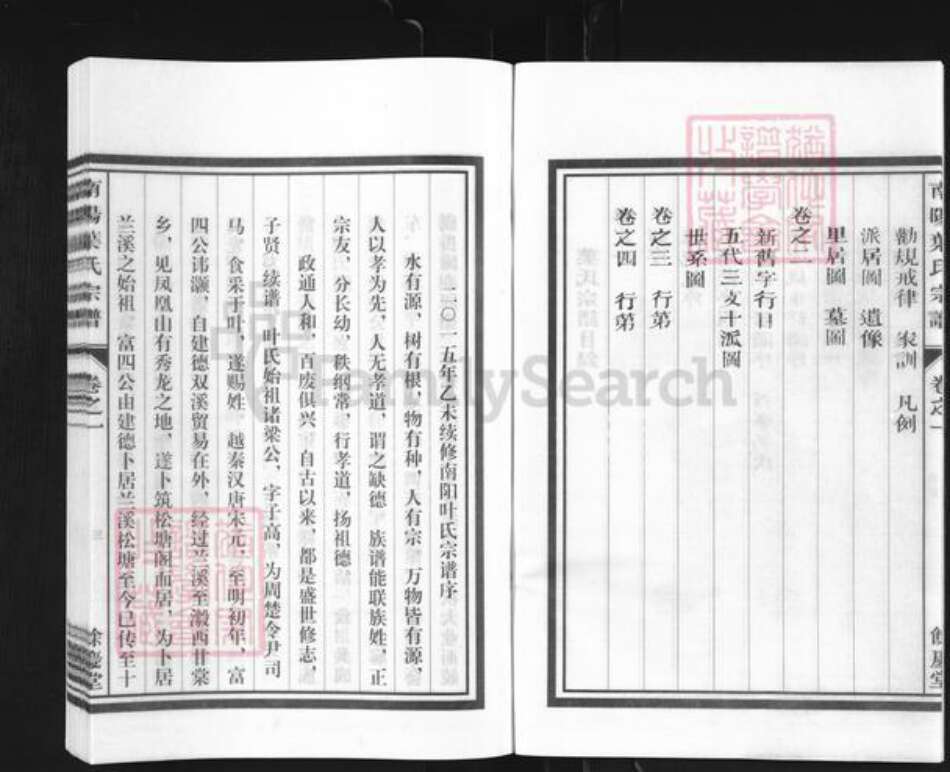 勸規戒律 家訓 凡例
派居圖 遺像
里居圖 墓圖
卷之二
新舊字行目
五代三支十派圖
世系圖
卷之三 行第
卷之四 行第
二〇一五年乙未续修南阳叶氏宗谱序
水有源,树有根,物有种,人有宗,万物皆有源,
人以孝为先,人无孝道,谓之缺德,族谱能联族姓,正
宗友,分长幼,秩纲常,行孝道,扬祖德
政通人和,百废俱兴,自古以来,都是盛世修志,
子贤续谱,叶氏始祖诸梁公、字子高,为周楚令尹司
马,食采于叶,遂赐姓,越秦汉唐宋元,至明初年,富
四公讳灏,自建德双溪贸易在外,经过兰溪至濲西廿棠
乡,见凤凰山有秀龙之地,遂卜筑松塘阁而居,为卜居
兰溪之始祖,富四公由建德卜居兰溪松塘至今已传至十
南陽葉氏宗譜
卷之一
三
餘慶堂
南陽葉氏宗譜
卷之一
餘慶堂
FamilySearch